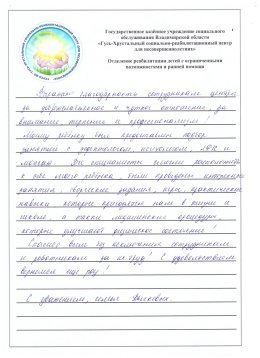 Государственное казённое учреждение социального
обслуживания Владимирской области
«Гусь-Хрустальный социально-реабилитационный центр
для несовершеннолетних»
Отделение реабилитации детей с ограниченными
возможностями и ранней помощи
Выражаем благодарность сотрудникам центра
за доброжелательное и чуткое отношение, за
внимание терпение и профессионализм!
Моему ребёнку был предоставлен
занятия с дефектологом, психологом, ЛФК и
массаж. Эти специалисты смогли расположить
к себе моего ребёнка, были проведены интересные
занятия, творческие задания, игры, практические
навыки которые пригодятся нам в жизни и
школе, а также медицинские процедуры,
которые улучшают состояние!
Спасибо всем без исключения сотрудникам
и работникам за их труд! С удовольствием
вернемся ещё раз!
С уважением, семья